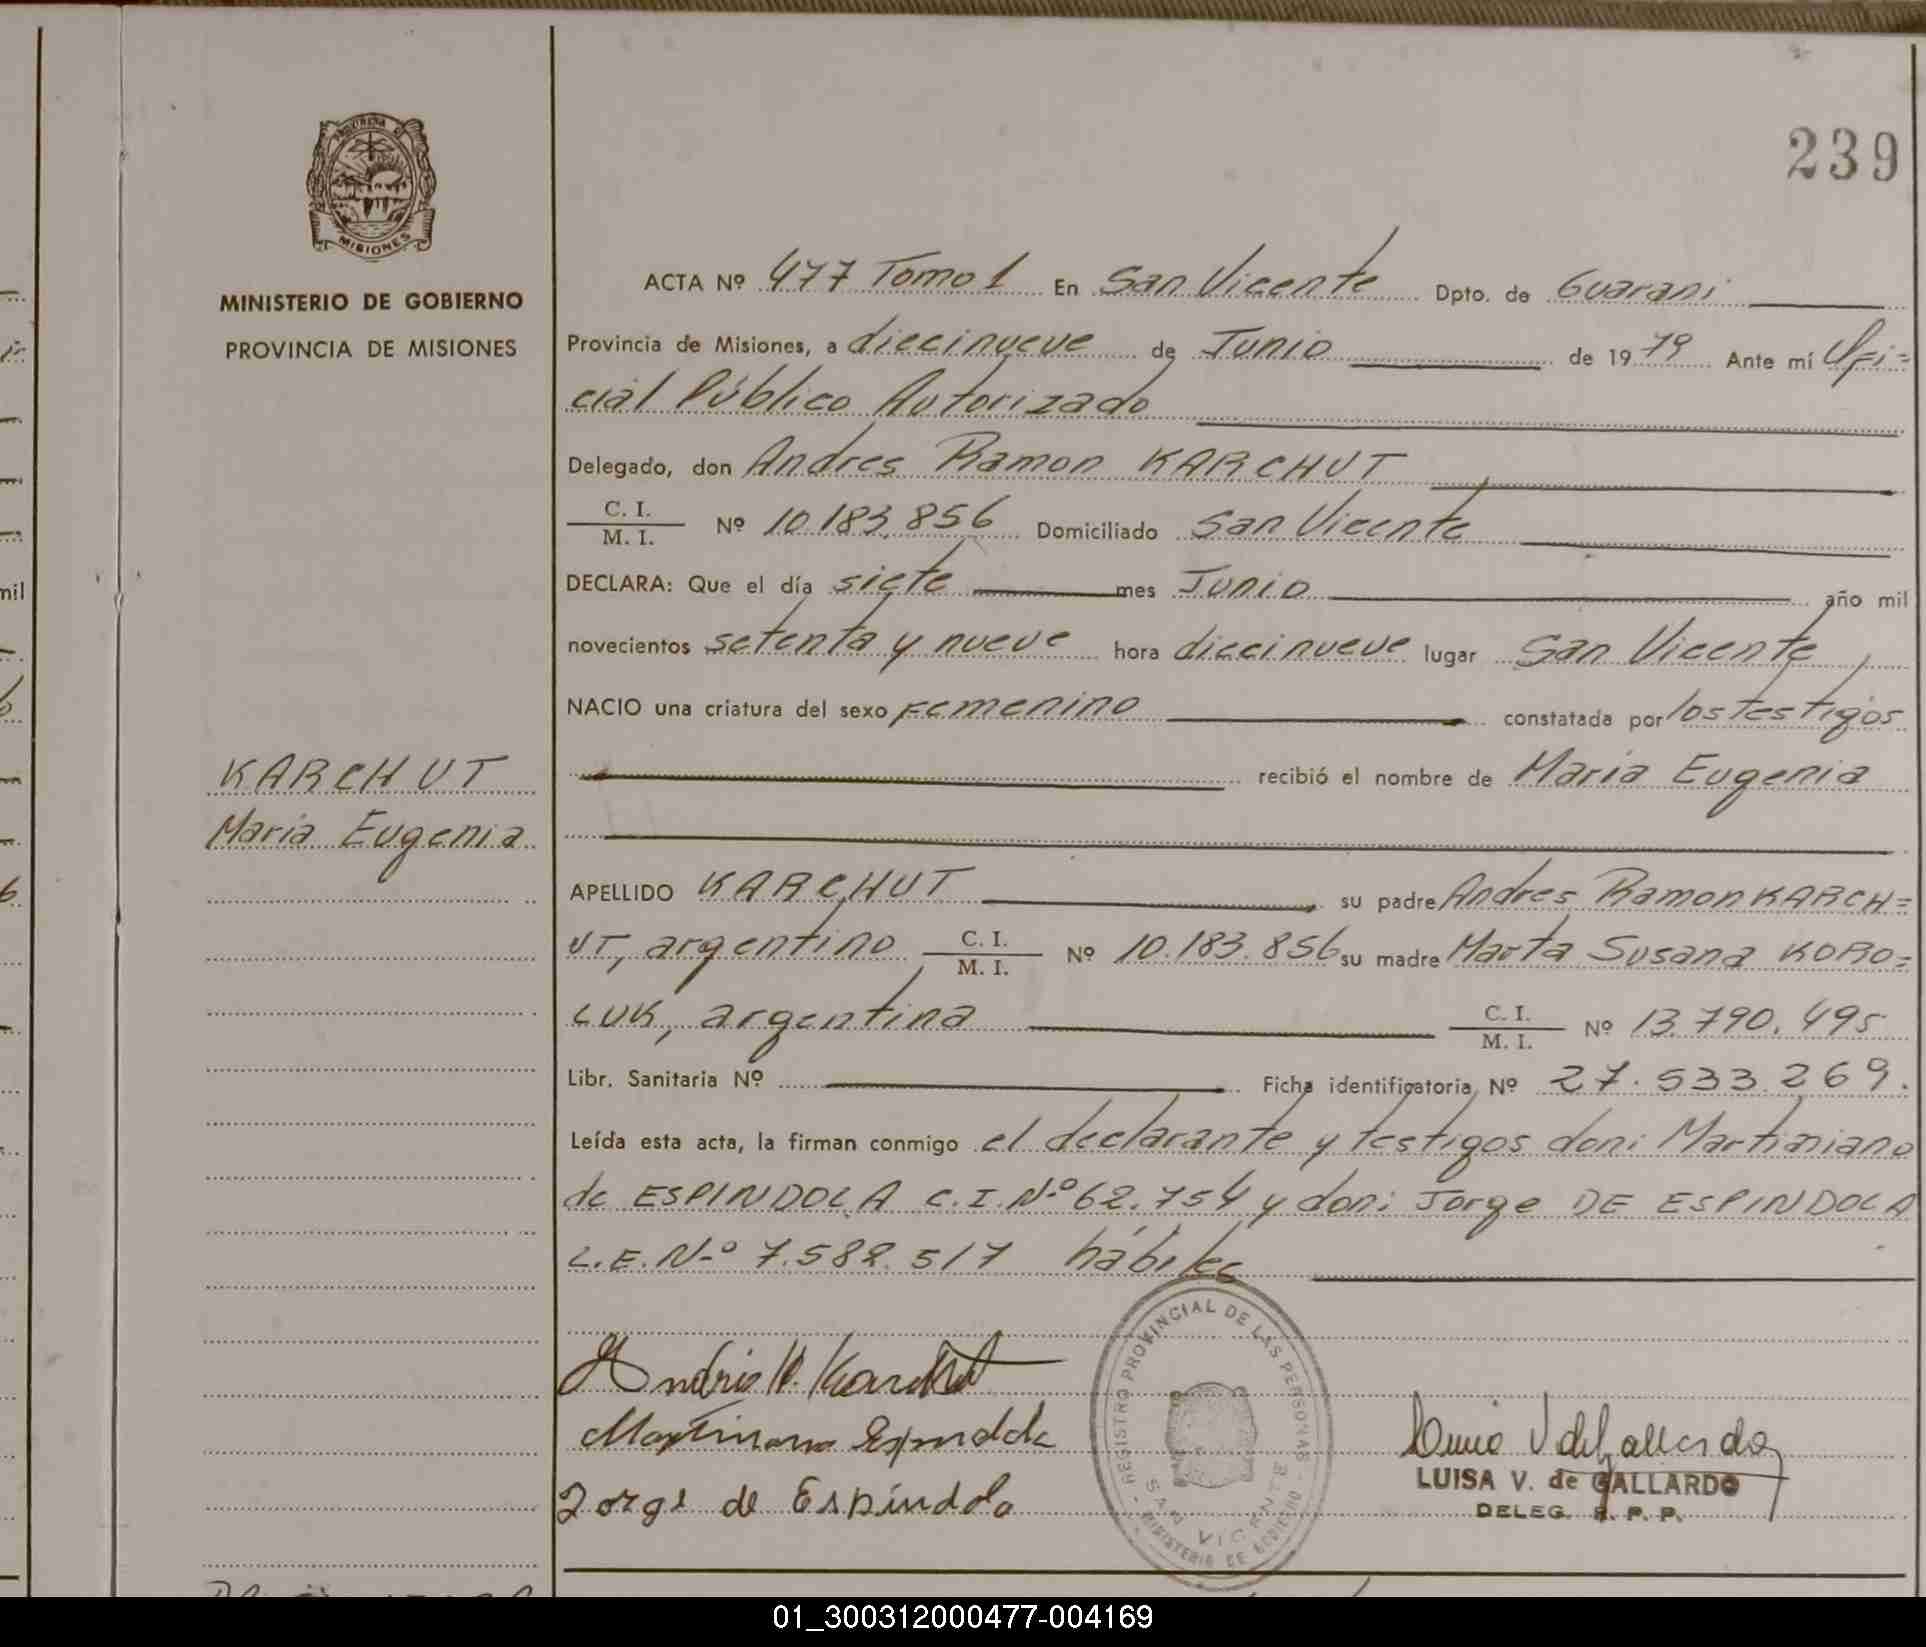 239
PROVINCIA DE
MISIONES
MINISTERIO DE GOBIERNO
PROVINCIA DE MISIONES
KARCHUT
Maria Eugenia
ACTA Nº 477 Tomo 1 En San Vicente Dpto. de Guarani
Provincia de Misiones, a diecinueve de Junio de 1979 Ante mí Ofi=
cial Público Autorizado
Delegado, don Andres Ramon KARCHUT
C. I.
M. I. Nº 10.183.856 Domiciliado San Vicente
DECLARA: Que el día siete mes Junio año mil
novecientos setenta y nueve hora diecinueve lugar San Vicente,
NACIO una criatura del sexo Femenino constatada por los testigos
recibió el nombre de Maria Eugenia
APELLIDO KARCHUT su padre Andres Ramon KARCH=
UT, argentino C. I.
M. I. Nº 10.183.856 su madre Marta Susana KORO=
LUK, argentina C. I.
M. I. Nº 13.790.495
Libr. Sanitaria Nº Ficha identificatoria Nº 27.533.269.
Leída esta acta, la firman conmigo el declarante y testigos don: Martiniano
de ESPINDOLA C.I.Nº 62.754 y don: Jorge DE ESPINDOLA
L.E.Nº 7.582.517 hábiles
Andrés R. Karchut
Martiniano Espindola
Jorge de Espíndola
REGISTRO PROVINCIAL DE LAS PERSONAS
SAN VICENTE
MINISTERIO DE GOBIERNO
Luisa V de Gallardo
LUISA V. de GALLARDO
DELEG. R. P. P.
mil
01_300312000477-004169